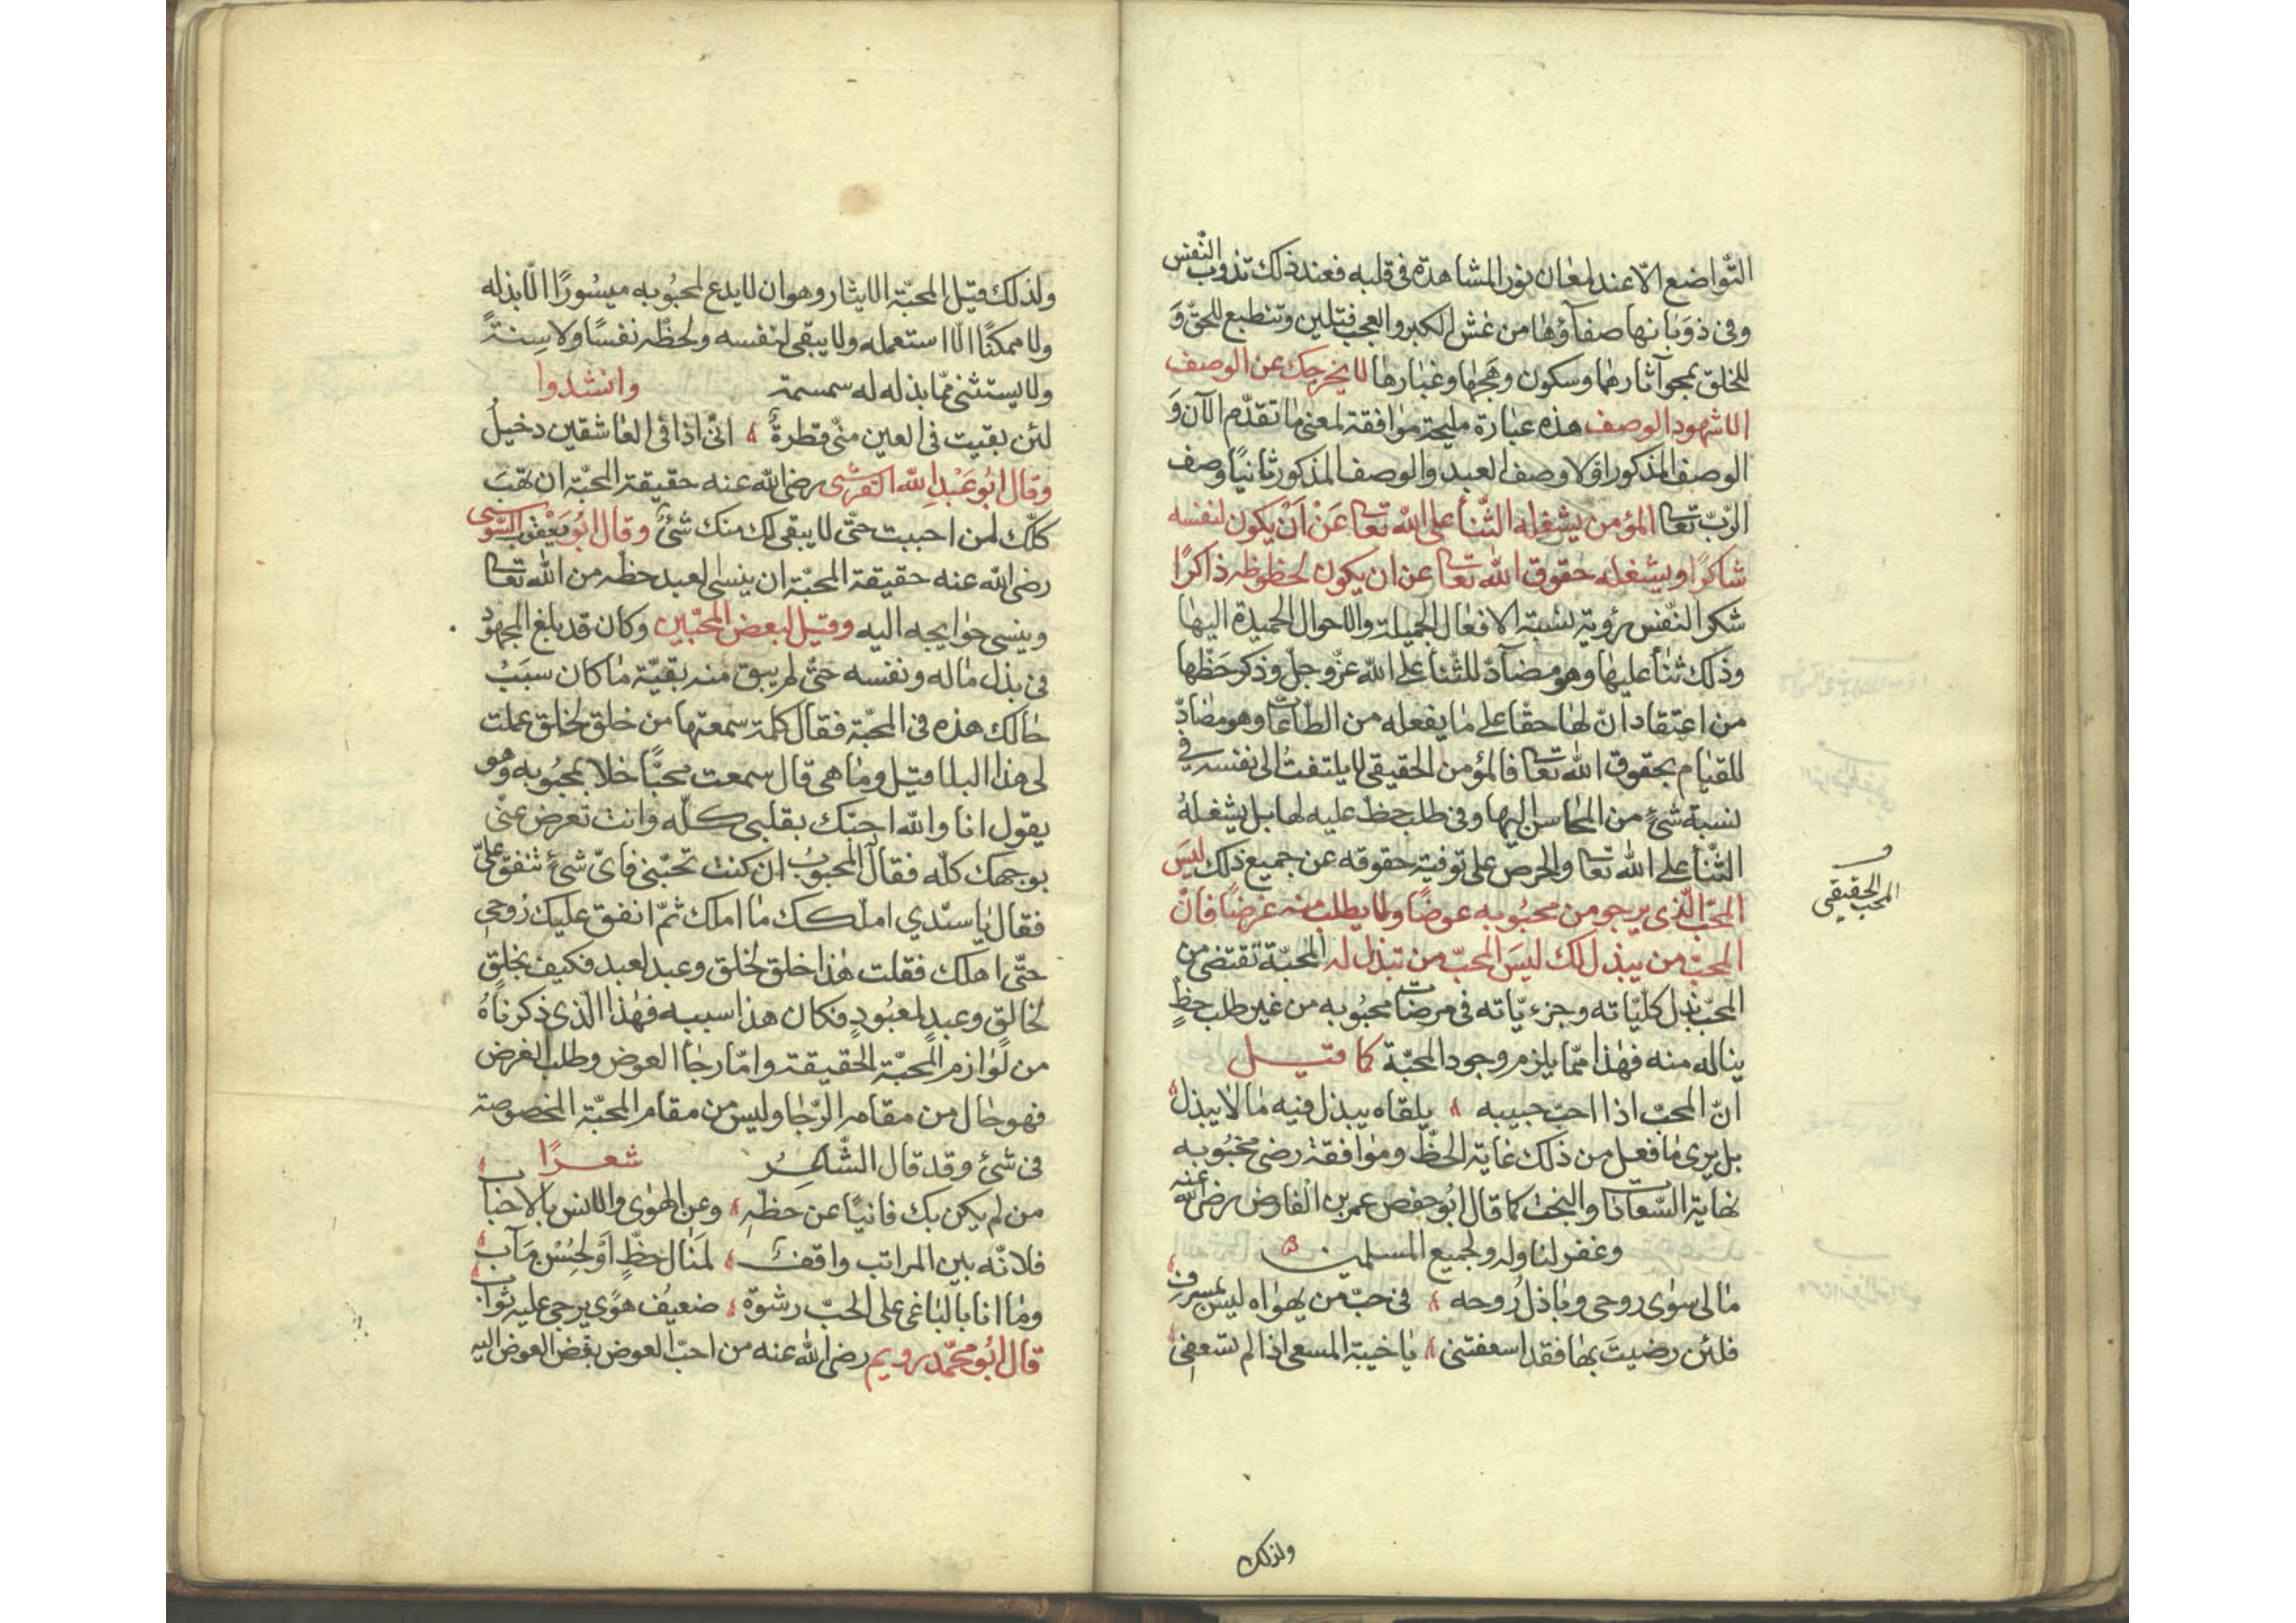 التّواضع الّا عند لمعان نور المشاهدة فى قلبه فعند ذلك تذوب النّفس
وفى ذوبانها صفاؤها من غش الكبر والعجب فتلين وتنطبع للحقّ وَ
للخلق بمحو آثارها وسكون وهجها وغبارها لا يخرجك عن الوصف
الا شهود الوصف هذه عبارة مليحة موافقة لمعنى ما تقدّم الآن وَ
الوصف المذكور اوّلا وصف العبد والوصف المذكور ثانيًا وصف
الرّبّ تعا المؤمن يشغله الثّنأ على الله تعا عَنْ اَنْ يكون لنفسه
شاكرًا ويشغله حقوق الله تعا عن ان يكون لحظوظه ذاكرًا
شكر النّفس رؤية نسبة الافعال الجميلة والاحوال الحميدة اليها
وذلك ثنأ عليها وهو مضآدّ للثّنأ على الله عزّ وجلّ وذكر حَظّها
من اعتقاد انّ لها حقًّا على ما يفعله من الطّاعات وهو مضادّ
للقيام بحقوق الله تعا فالمؤمن الحقيقى لا يلتفتُ الى نفسه فى
نسبة شئٍ من المحاسن اليها وفى طلب حظّ عليه لها بل يشغلهُ
الثّنأ على الله تعا والحرص على توفية حقوقه عن جميع ذلك ليسَ
المحبّ الّذى يرجو من محبُوبه عوضًا ولا يطلب منه غرضًا فانّ
المحبّ من يبذل لك ليسَ المحبّ من تبذل له المحبّة تقتضى من
المحبّ بذل كلّيّاته وجزءيّاته فى مرضات محبُوبه من غير طلب حظٍّ
يناله منه فهٰذا ممّا يلزم وجود المحبّة كما قيل
انّ المحبّ اذا احبّ حبيبه ؛ يلقاه يبذل فيه ما لا يبذل
بل يرى ما فعل من ذلك غاية الحظّ وموافقة رضى محبُوبه
نهاية السّعادات والبخت كما قال ابُو حفص عمر بن الفارض رضى الله عنه
وغفر لنا وله ولجميع المسلمين
ما لى سوى روحى وباذل رُوحه ؛ فى حبّ من يهواه ليس بمسرفِ
فلئن رضيتَ بها فقد اسعفتنى ؛ يا خيبة المسعى اذا لم تسعفِ
المحبّ الحقيقى
ولذلك
ولذلك قيل المحبّة الايثار وهو ان لا يدع لمحبُوبه ميسُورًا الّا بذله
ولا ممكنًا الّا استعمله ولا يبقى لنفسه ولحظّه نفسًا ولا سِنةً
ولا يستثنى ممّا بذله له سمسمة وانشدوا
لئن بقيت فى العين منّى قطرةٌ ؛ انّى اذا فى العاشقين دخيلُ
وقال ابُو عَبْدِ الله القرشى رضى الله عنه حقيقة المحبّة ان تهبَ
كلّك لمن احببت حتّى لا يبقى لك منك شئٌ وقال ابُو يَعْقوب السّوسى
رضى الله عنه حقيقة المحبّة ان ينسى العبد حظّه من الله تعا
وينسى حوايجه اليه وقيل لبعض المحبّين وكان قد بلغ المجهود
فى بذل ماله ونفسه حتّى لم يبق منه بقيّة ما كان سبَبُ
حالك هذه فى المحبّة فقال كلمة سمعتها من خلق لخلق عملت
لى هذا البلا قيل وما هى قال سمعت محبًّا خلا بمحبُوبه وهو
يقول انا والله احبّك بقلبى كلّه وانت تعرض عنّى
بوجهك كلّه فقال المحبوبُ ان كنت تحبّنى فاىّ شئٍ تنفق علىّ
فقال يا سيّدي املّكك ما املك ثمّ انفق عليك رُوحى
حتّى اهلك فقلت هٰذا خلق لخلق وعبد لعبد فكيف بخلقٍ
لخالقٍ وعبدٍ لمعبُودٍ فكان هذا سببه فهٰذا الّذى ذكرناهُ
من لوازم المحبّة الحقيقة وامّا رجأ العوض وطلب الغرض
فهو حال من مقام الرّجا وليس من مقام المحبّة المخصوصة
فى شئ وقد قال الشّاعِرُ شعرًا
من لم يكن بك فانيًا عن حظّهِ ؛ وعن الهوى والانس بالاحباب
فلانّه بين المراتب واقفٌ ؛ لمَنال حظٍّ اَوْ لحُسْن مَآب
وما انا بالباغى على الحبّ رشوةً ؛ ضعيُف هوًى يرجى عليه ثواب
قال ابُو محمّد رويم رضى الله عنه من احبّ العوض بغض العوض اليه